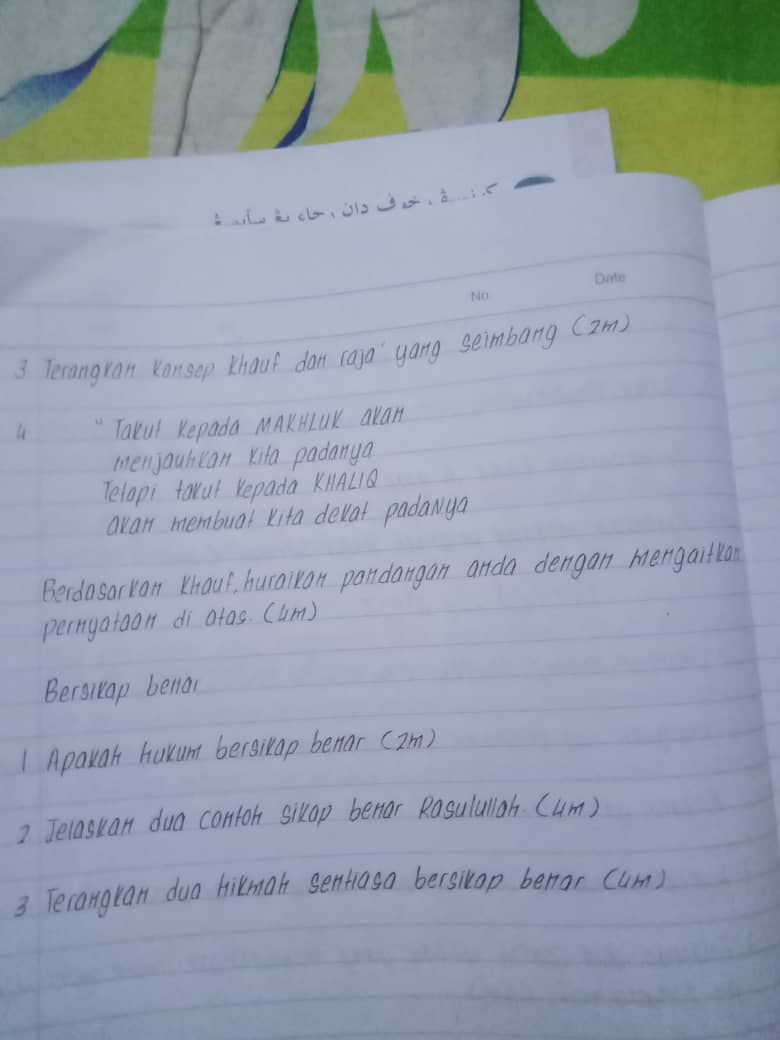 خوف دان
No
Date
3 Terangkan konsep khauf dan raja' yang seimbang (2m)
4 " Takut kepada MAKHLUK akan
menjauhkan kita padanya
Tetapi takut kepada KHALIQ
akan membuat kita dekat padaNya
Berdasarkan khauf, huraikan pandangan anda dengan mengaitkan
pernyataan di atas. (4m)
Bersikap benar
1 Apakah hukum bersikap benar (2m)
2 Jelaskan dua contoh sikap benar Rasulullah. (4m)
3 Terangkan dua hikmah sentiasa bersikap benar (4m)